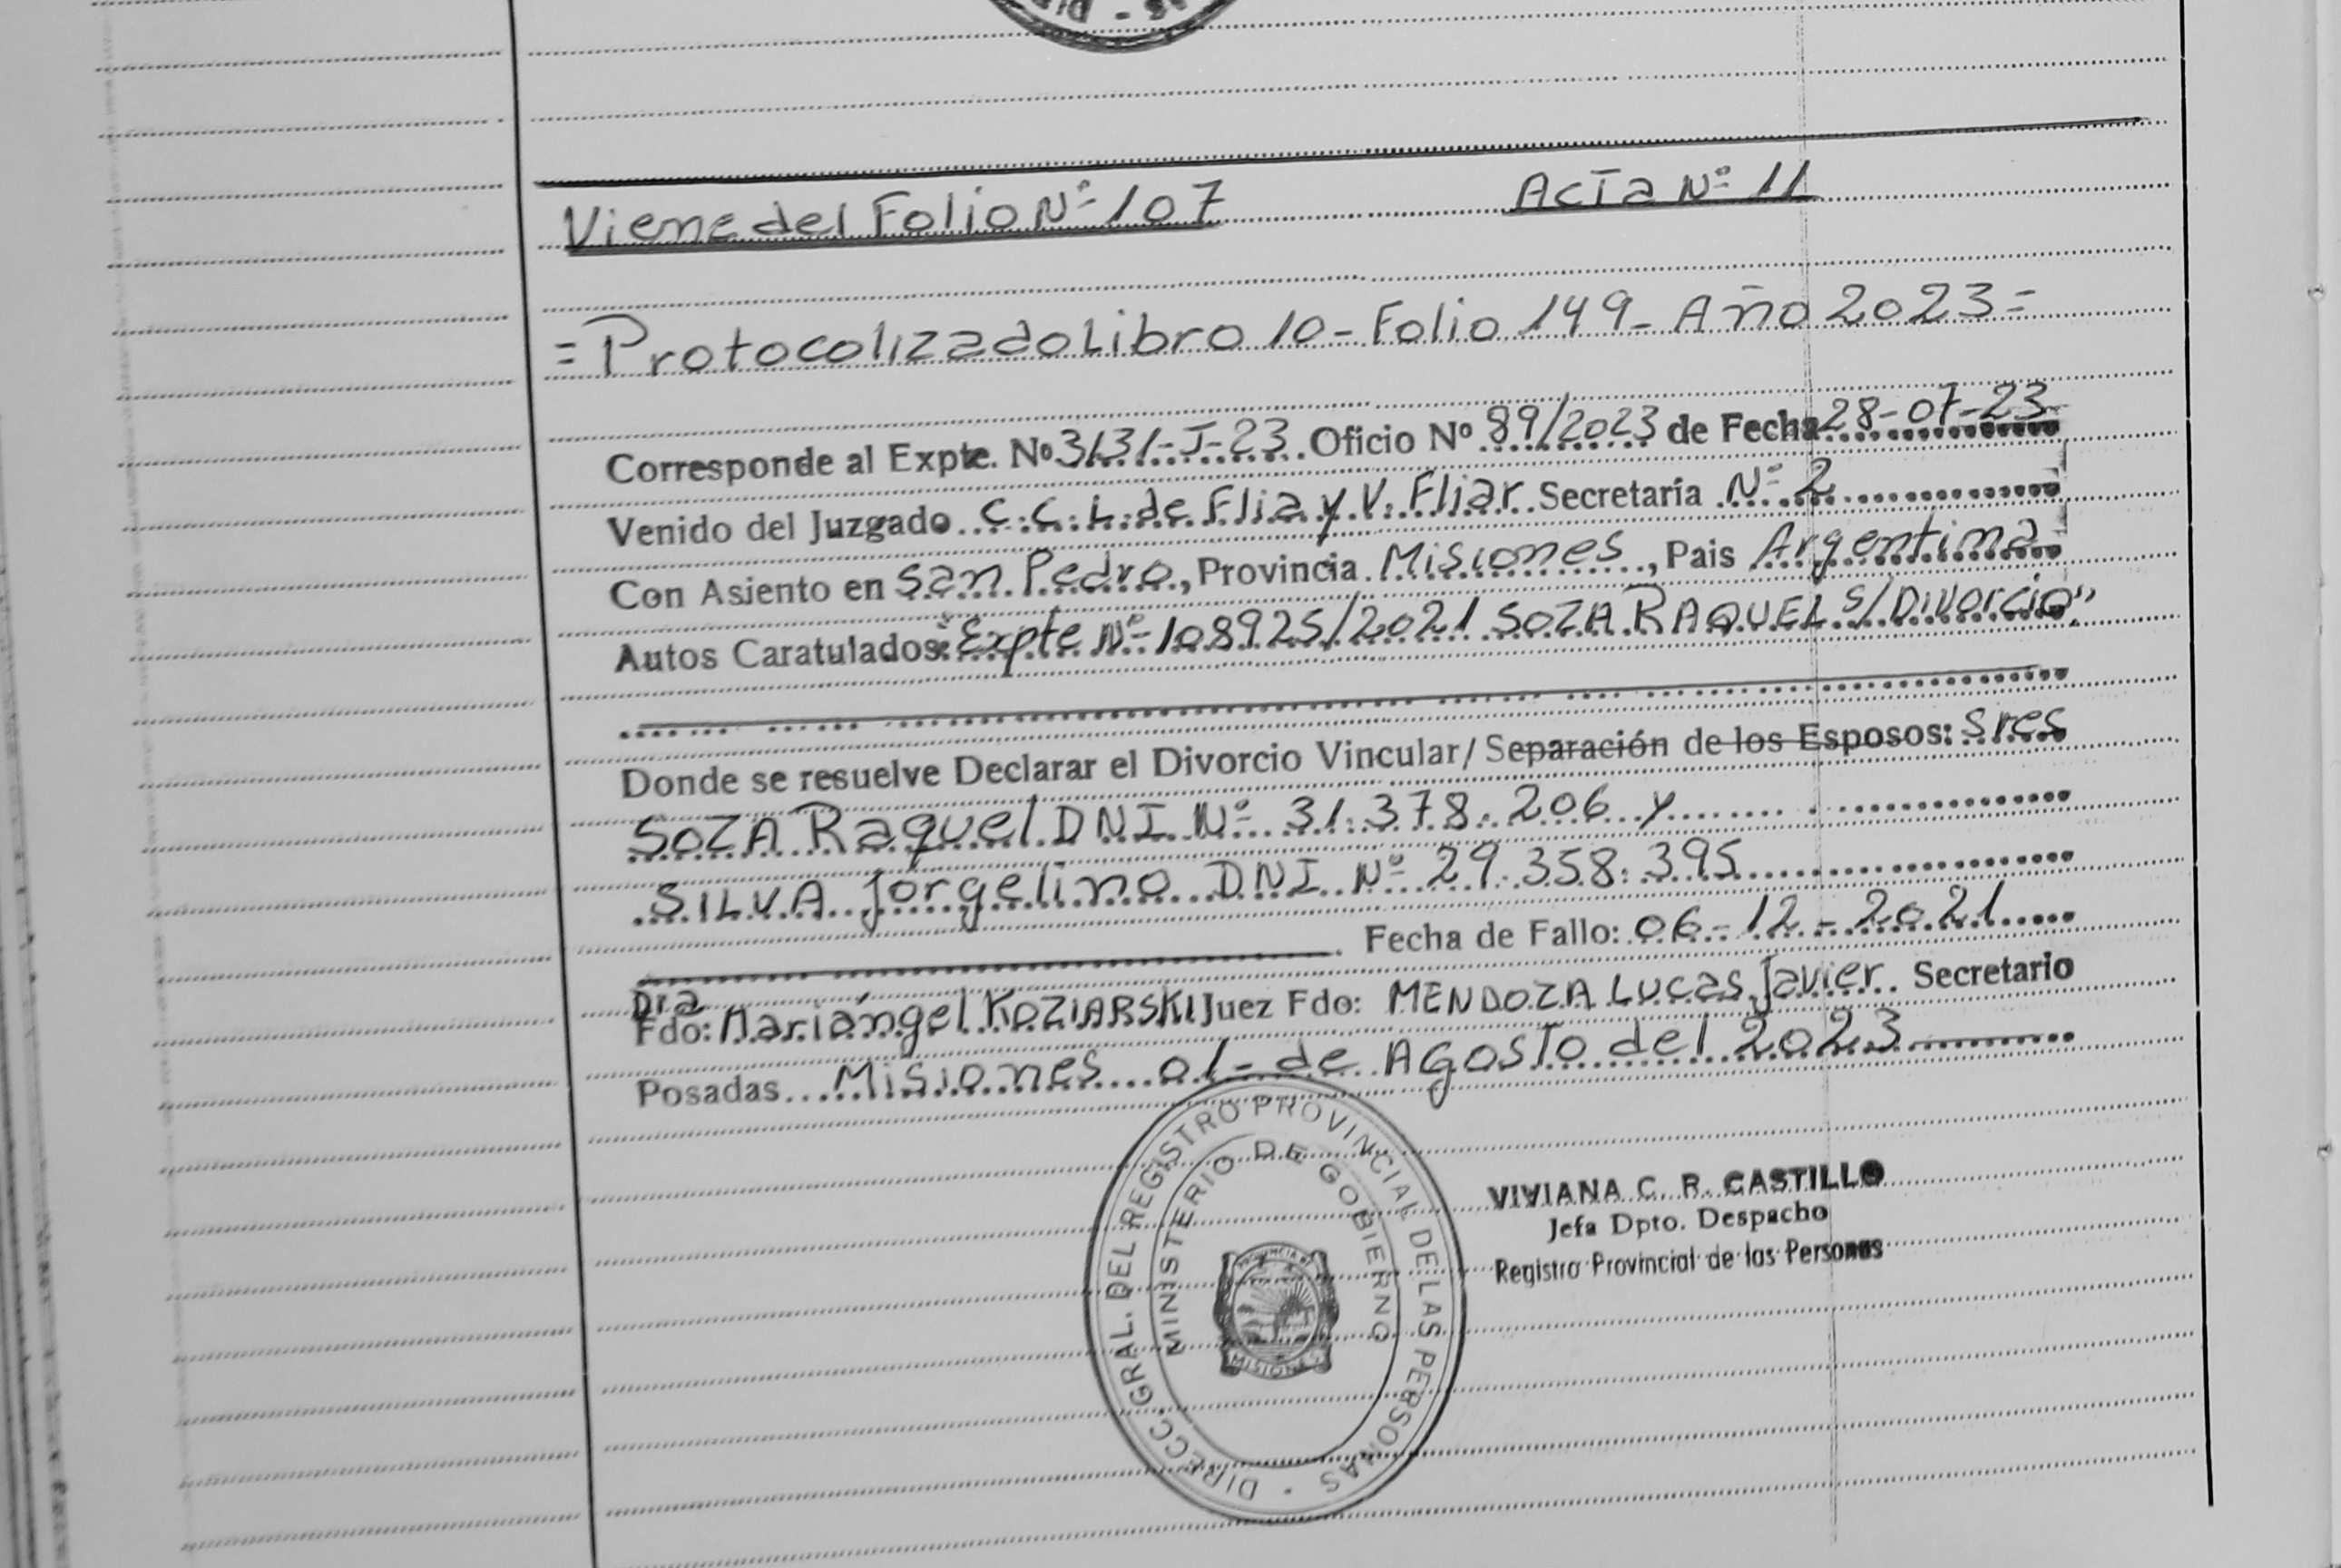 Viene del Folio Nº 107 Acta Nº 11
= Protocolizado Libro 10 - Folio 149 - Año 2023 =
Corresponde al Expte. Nº 3131-J-23 Oficio Nº 89/2023 de Fecha 28-07-23
Venido del Juzgado C.C.L. de Flia y V. Fliar Secretaría Nº 2
Con Asiento en San Pedro, Provincia Misiones, Pais Argentina
Autos Caratulados: "Expte Nº 108925/2021 SOZA RAQUEL s/Divorcio"
Donde se resuelve Declarar el Divorcio Vincular/Separación de los Esposos: Sres
SOZA Raquel DNI Nº 31.378.206 y
SILVA Jorgelino DNI Nº 29.358.395
Fecha de Fallo: 06-12-2021
Dra
Fdo: Mariángel KOZIARSKI Juez Fdo: MENDOZA Lucas Javier Secretario
Posadas Misiones 01 - de Agosto del 2023
DIRECC. GRAL. DEL REGISTRO PROVINCIAL DE LAS PERSONAS -
MINISTERIO DE GOBIERNO
PROVINCIA DE
MISIONES
VIVIANA C. R. CASTILLO
Jefa Dpto. Despacho
Registro Provincial de las Personas